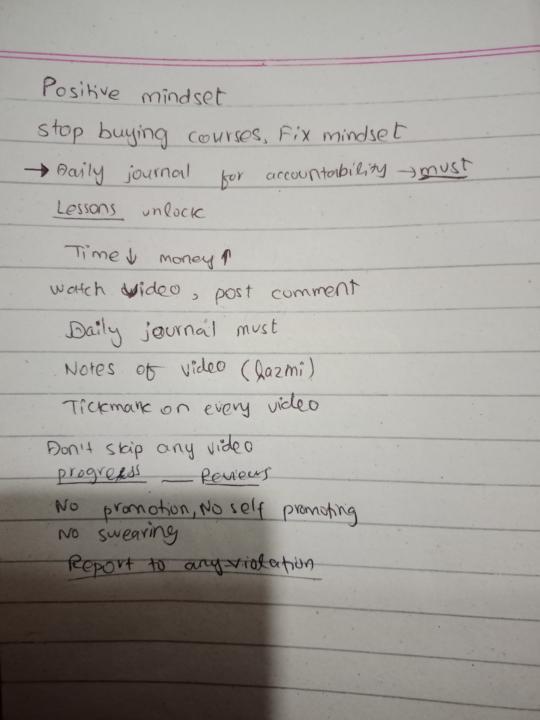 Positive mindset
stop buying courses, Fix mindset
→ Daily journal for accountability → must
Lessons unlock
Time ↓ money ↑
watch video, post comment
Daily journal must
Notes of video (lazmi)
Tickmark on every video
Don't skip any video
progress — Reviews
No promotion, No self promoting
No swearing
Report to any violation